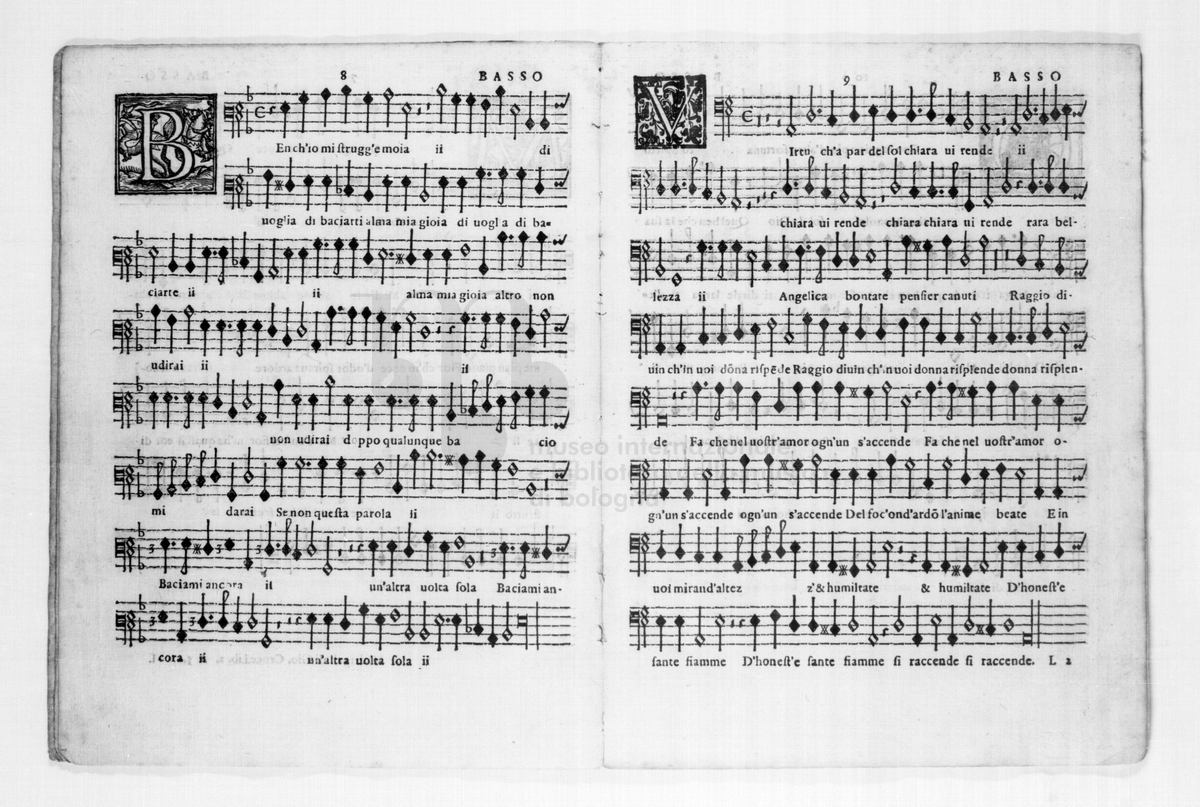 8 BASSO
BEn ch'io mi strugg'e moia ii di
uoglia di baciarti alma mia gioia di uogl a di ba-
ciarte ii ii alma mia gioia altro non
udirai ii ii
ii non udirai doppo qualunque ba cio
mi darai Se non questa parola ii
Baciami ancora ii un'altra uolta sola Baciami an-
cora ii un'altra uolta sola ii
9 BASSO
VIrtu ch'a par del sol chiara ui rende ii
chiara ui rende chiara chiara ui rende rara bel-
lezza ii Angelica bontate pensier canuti Raggio di-
uin ch'in uoi dōna rispēde Raggio diuin ch'in uoi donna risplende donna risplen-
de Fa che nel uostr'amor ogn'un s'accende Fa che nel uostr'amor o-
gn'un s'accende ogn'un s'accende Del foc'ond'ardō l'anime beate E in
uoi mirand'altez z'& humiltate & humiltate D'honest'e
sante fiamme D'honest'e sante fiamme si raccende si raccende. L 2
museo internazionale
e biblioteca della musica
di bologna